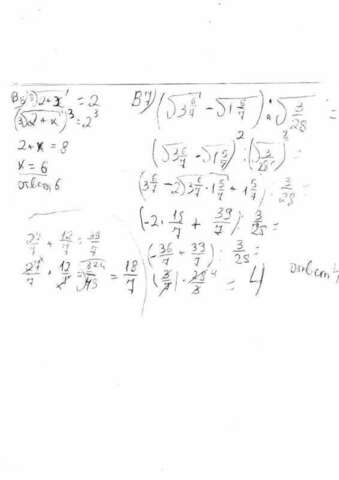 B5 ∛2+x = 2
(∛2+x)³ = 2³
2+x = 8
x = 6
ответ 6
27/7 + 12/7 = 39/7
27/7 · 12/7 = √324/49 = 18/7
B7) (√3 6/7 − √1 5/7) : √3/28 =
(√3 6/7 − √1 5/7)² : (√3/28)² =
(3 6/7 − 2√3 6/7 · 1 5/7 + 1 5/7) : 3/28 =
(−2 · 18/7 + 39/7) : 3/28 =
(−36/7 + 39/7) : 3/28 =
(3/7) · 28/3 = 4
ответ 4